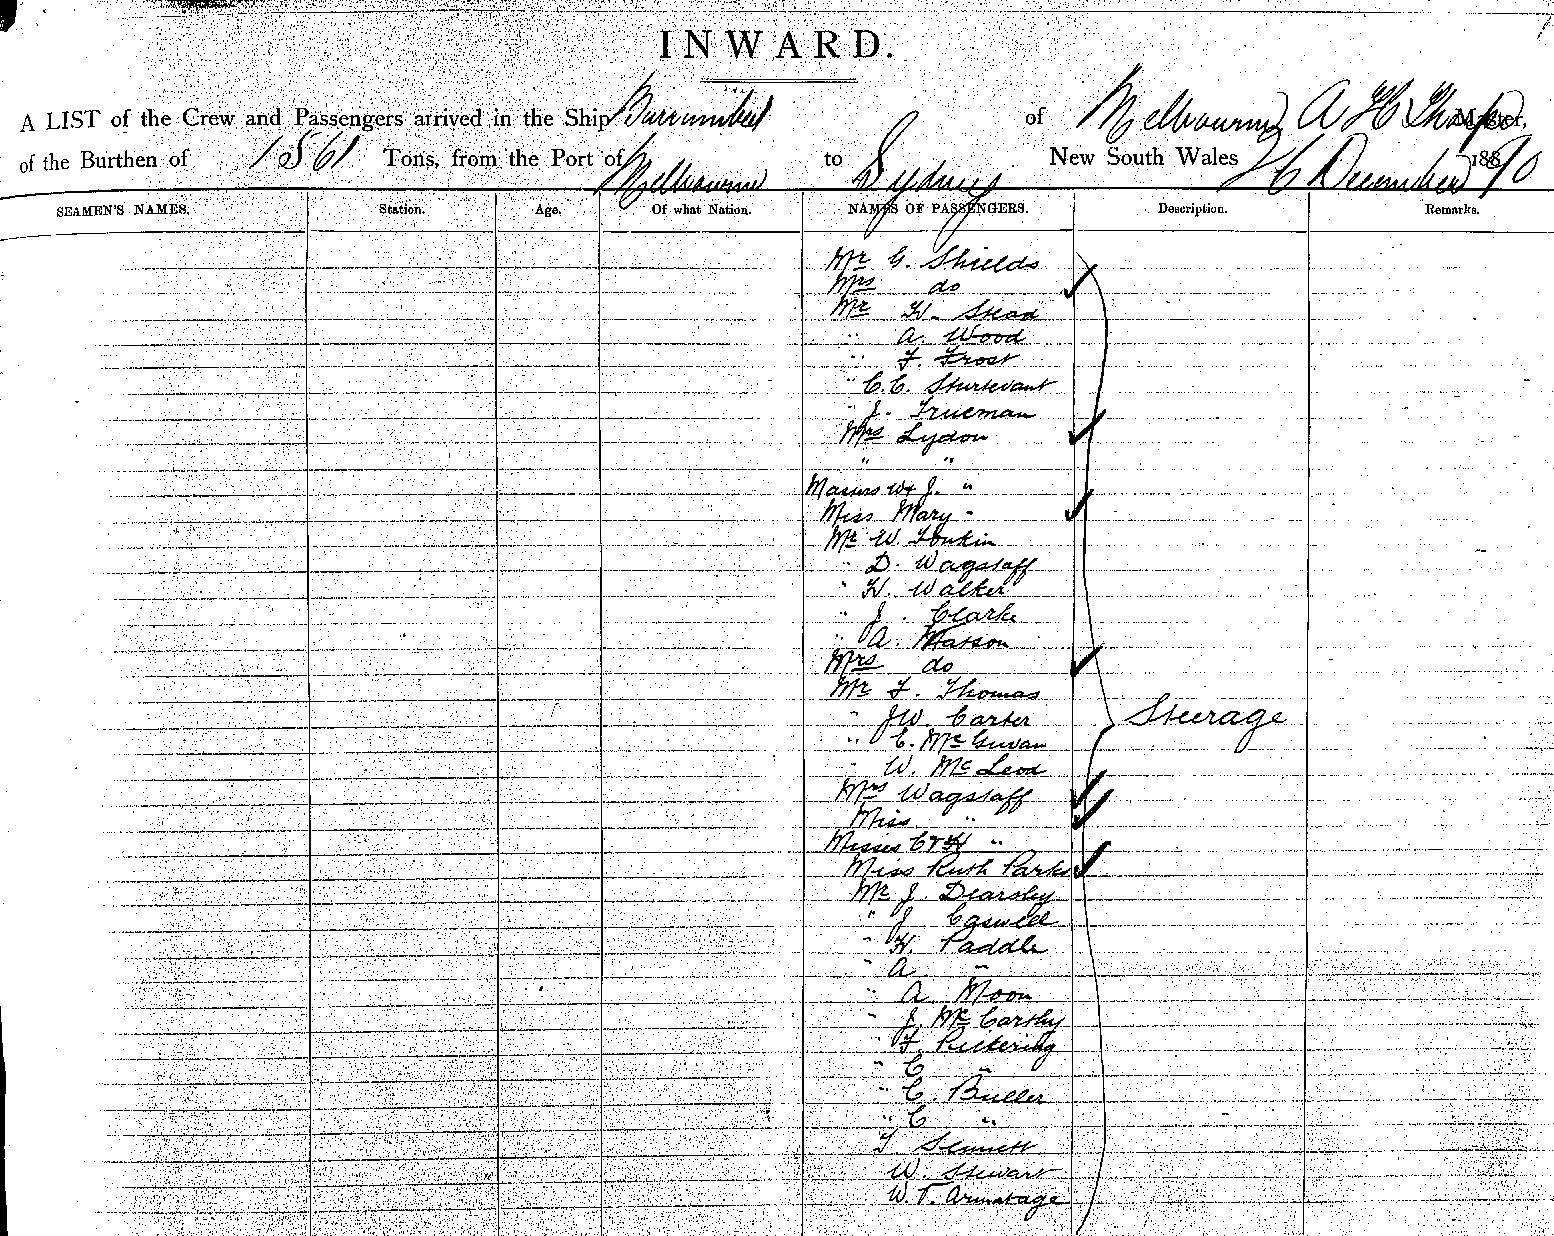 INWARD.
A LIST of the Crew and Passengers arrived in the Ship Burrumbeet of Melbourne, A H Thorpe Master,
of the Burthen of 1561 Tons, from the Port of Melbourne to Sydney New South Wales December 1890
SEAMEN'S NAMES. Station. Age. Of what Nation. NAMES OF PASSENGERS. Description. Remarks.
Mr G. Shields
Mrs do
Mr H. Stead
" A. Wood
" F. Frost
" C.C. Sturtevant
" J. Trueman
Mrs Lydon
" "
Masters W & J. "
Miss Mary "
Mr W. Tonkin
" D. Wagstaff
" H. Walker
" J. Clarke
" A. Watson
Mrs do
Mr F. Thomas
" JW. Carter Steerage
" C. McGuvan
" W. McLeod
Mrs Wagstaff
Miss "
Misses C & H "
Miss Ruth Parks
Mr J. Dearsley
" J Caswell
" H. Paddle
" A "
" A. Moon
" J. McCarthy
" F. Pickering
" C "
" C. Buller
" C "
T Sennett
W. Stewart
W.T. Armatage